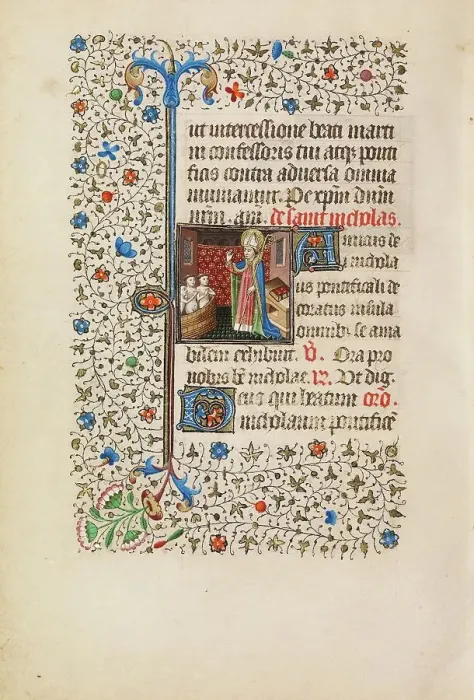 ut intercessione beati marti
ni confessoris tui atq3 ponti
ficis contra adversa omnia
muniamur. Pe xpm dnm
nrm. am. de saint nicholas.
Amicus dei
nichola
us pontificali de
coratus insula
omnibz se ama
bilem exhibuit. V. Ora pro
nobis be nicholae. R. Ut dig.
Deus qui beatum oro.
nicholaum pontifice